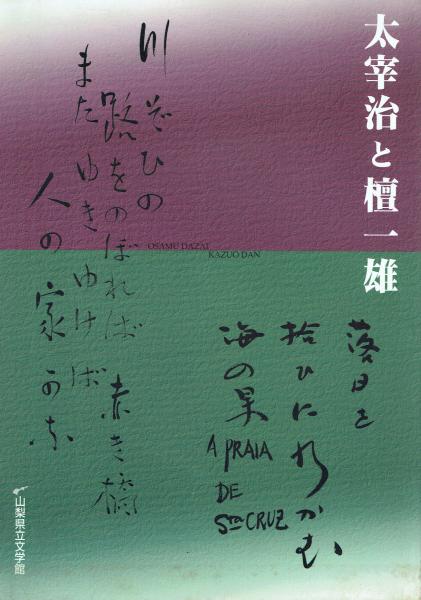 太宰治と檀一雄
川ぞひの
路をのぼれば 赤き橋
またゆきゆけば
人の家かな
OSAMU DAZAI
KAZUO DAN
落日を
拾ひに行かむ
海の果
A PRAIA
DE
Sta CRUZ
山梨県立文学館